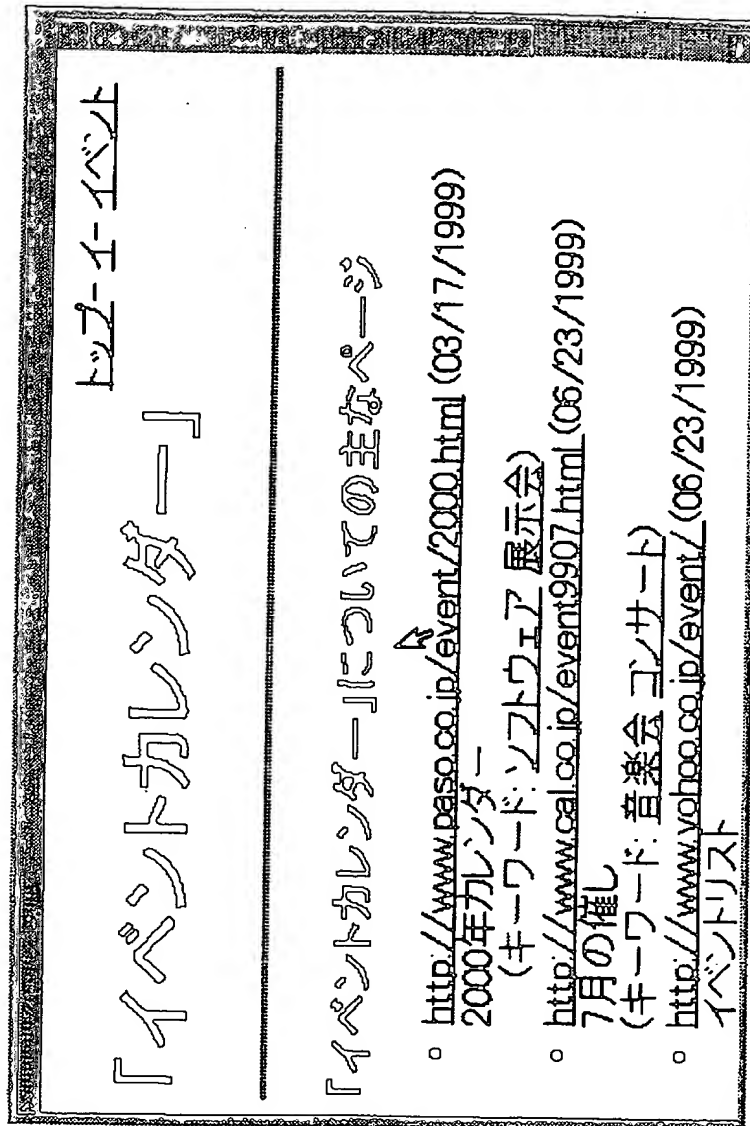 トップ - イ - イベント
『イベントカレンダー』
『イベントカレンダー』についての主なページ
○ http://www.paso.co.jp/event/2000.html (03/17/1999)
2000年カレンダー
(キーワード: ソフトウェア 展示会)
○ http://www.cal.co.jp/event9907.html (06/23/1999)
7月の催し
(キーワード: 音楽会 コンサート)
○ http://www.yohoo.co.jp/event/ (06/23/1999)
イベントリスト